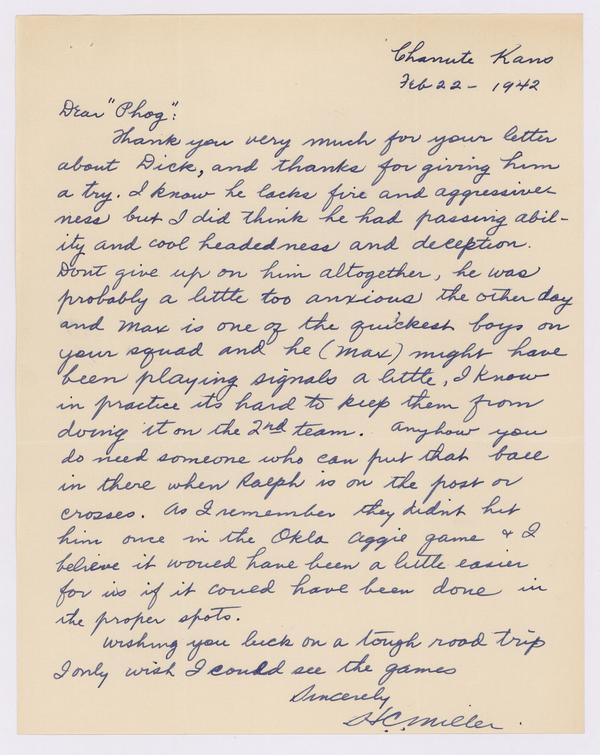 Chanute Kans
Feb 22 - 1942
Dear "Phog":
Thank you very much for your letter
about Dick, and thanks for giving him
a try. I know he lacks fire and aggressive-
ness but I did think he had passing abil-
ity and cool headedness and deception.
Dont give up on him altogether, he was
probably a little too anxious the other day
and Max is one of the quickest boys on
your squad and he (Max) might have
been playing signals a little, I know
in practice its hard to keep them from
doing it on the 2nd team. Anyhow you
do need someone who can put that ball
in there when Ralph is on the post or
crosses. As I remember they didn't hit
him once in the Okla Aggie game & I
believe it would have been a little easier
for us if it could have been done in
the proper spots.
Wishing you luck on a tough road trip
I only wish I could see the games
Sincerely
H.C. Miller.